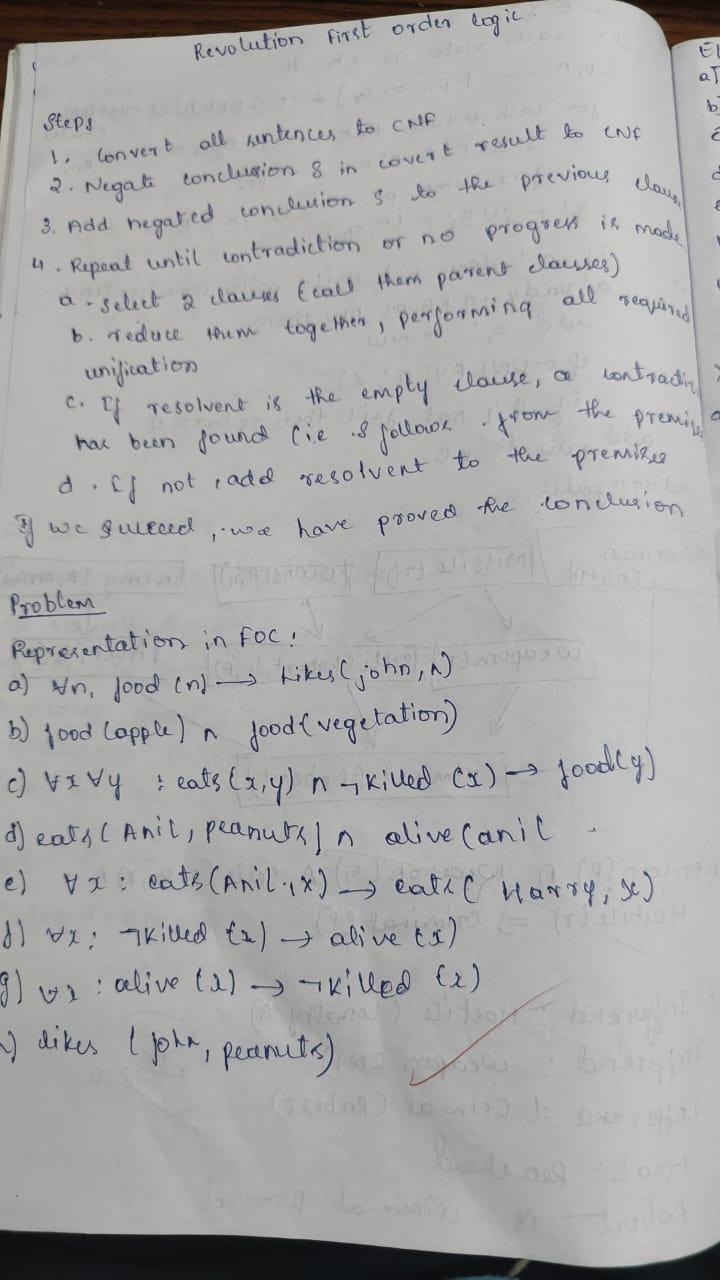 Revolution First order logic.
Steps
1. Convert all sentences to CNF
2. Negate conclusion S in covert result to CNF
3. Add negated conclusion S to the previous claus
4. Repeat until contradiction or no progress is made
a. select 2 clauses (call them parent clauses)
b. reduce them together, performing all required
unification
c. If resolvent is the empty clause, a contradi
has been found (i.e S follows from the premi
d. If not, add resolvent to the premises
If we succeed, we have proved the conclusion
Problem
Representation in FOC:
a) ∀n, food (n) → Likes (john, n)
b) food (apple) ∧ food (vegetation)
c) ∀x ∀y : eats (x,y) ∧ ¬killed (x) → food(y)
d) eats ( Anil, peanuts) ∧ alive (anil
e) ∀x : eats (Anil, x) → eats ( Harry, x)
f) ∀x : ¬killed (x) → alive (x)
g) ∀x : alive (x) → ¬killed (x)
) likes ( john, peanuts)
El
a)
b)